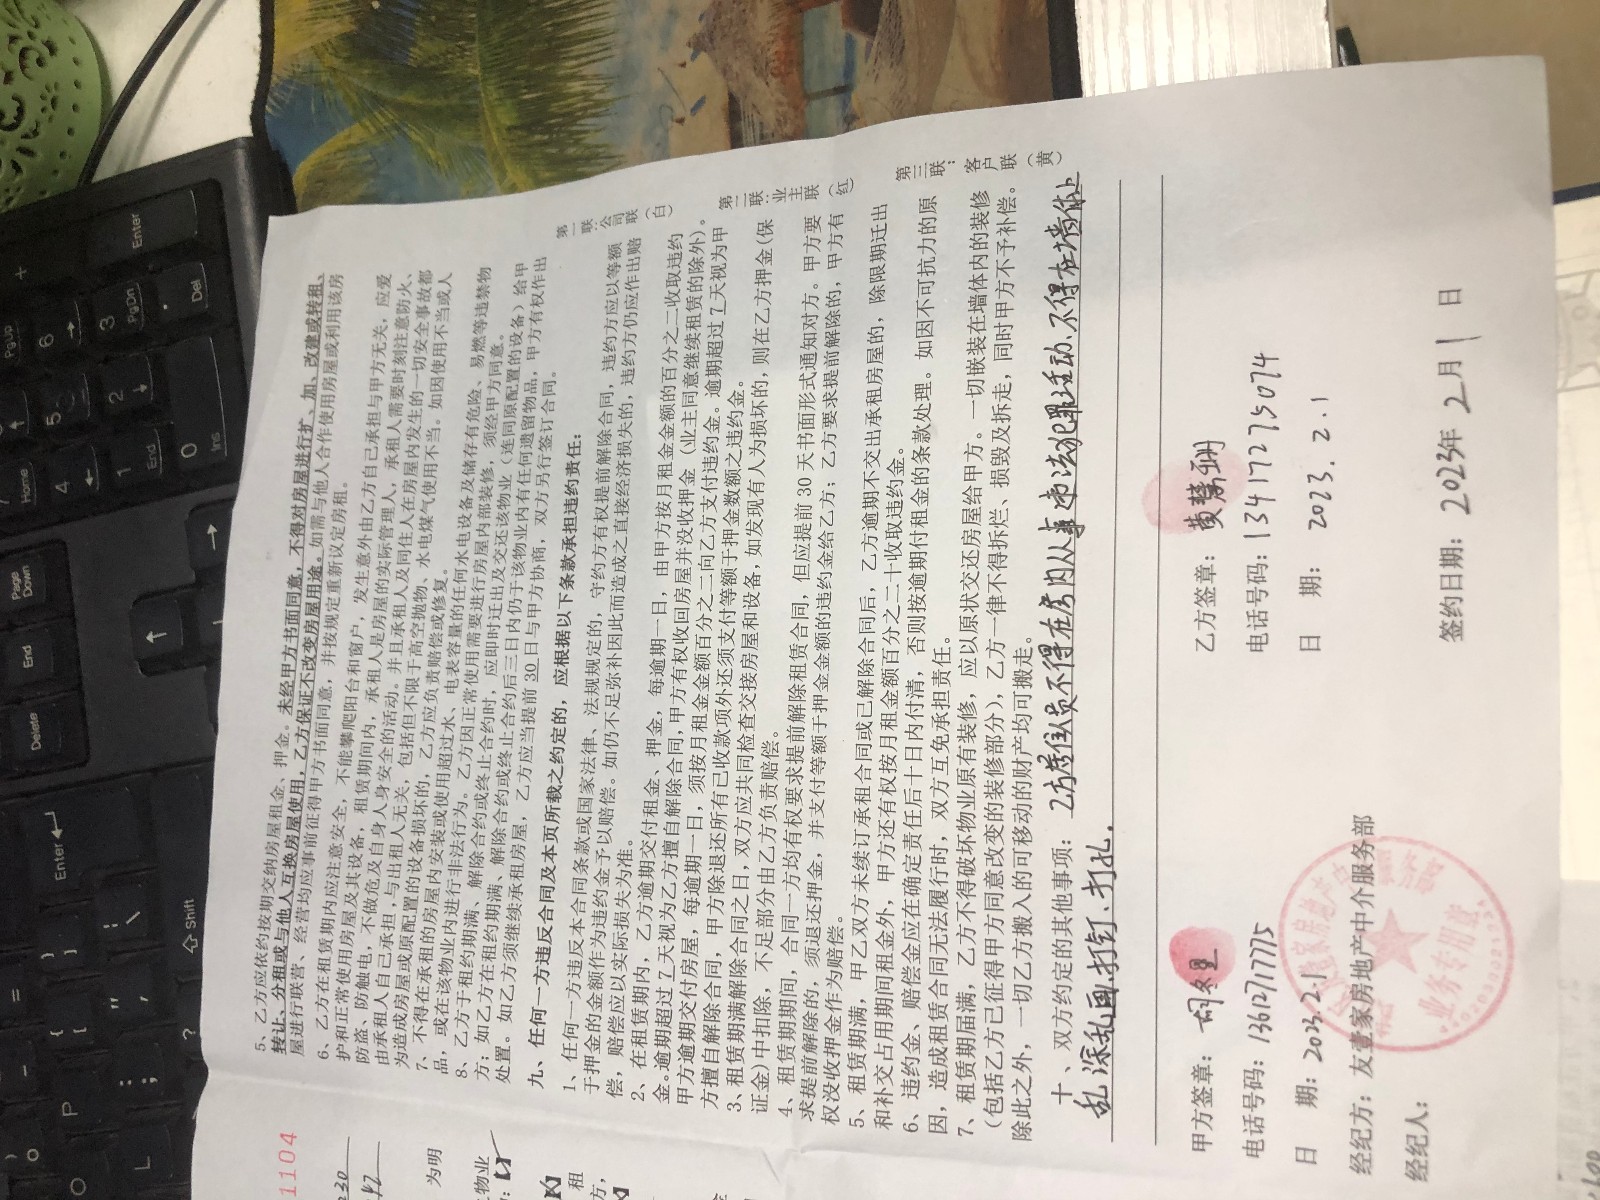 5、乙方应依约按期交纳房屋租金、押金。未经甲方书面同意，不得对房屋进行扩、加、改建或转租、
转让、分租或与他人互换房屋使用，乙方保证不改变房屋用途。如需与他人合作使用房屋或利用该房
屋进行联营、经营均应事前征得甲方书面同意，并按规定重新议定房租。
6、乙方在租赁期内应注意安全，不能攀爬阳台和窗户，发生意外由乙方自己承担与甲方无关，应爱
护和正常使用房屋及其设备，租赁期间内，承租人是房屋的实际管理人，承租人需要时刻注意防火、
防盗、防触电，不做危及自身人身安全的活动。并且承租人及同住人在房屋内发生的一切安全事故都
由承租人自己承担，与出租人无关，包括但不限于高空抛物、水电煤气使用不当。如因使用不当或人
为造成房屋或原配置的设备损坏的，乙方应负责赔偿或修复。
7、不得在承租的房屋内安装或使用超过水、电表容量的任何水电设备及储存有危险、易燃等违禁物
品，或在该物业内进行非法行为。乙方因正常使用需要进行房屋内部装修，须经甲方同意。
8、乙方于租约期满、解除合约或终止合约时，应即时迁出及交还该物业（连同原配置的设备）给甲
方；如乙方在租约期满、解除合约或终止合约后三日内仍于该物业内有任何遗留物品，甲方有权作出
处置。如乙方须继续承租房屋，乙方应当提前 30 日与甲方协商，双方另行签订合同。
九、任何一方违反合同及本页所载之约定的，应根据以下条款承担违约责任：
1、任何一方违反本合同条款或国家法律、法规规定的，守约方有权提前解除合同，违约方应以等额
于押金的金额作为违约金予以赔偿。如仍不足弥补因此而造成之直接经济损失的，违约方仍应作出赔
偿，赔偿应以实际损失为准。
2、在租赁期内，乙方逾期交付租金、押金，每逾期一日，由甲方按月租金金额的百分之二收取违约
金。逾期超过 7 天视为乙方擅自解除合同，甲方有权收回房屋并没收押金（业主同意继续租赁的除外）。
甲方逾期交付房屋，每逾期一日，须按月租金金额百分之二向乙方支付违约金。逾期超过 7 天视为甲
方擅自解除合同，甲方除退还所有已收款项外还须支付等额于押金数额之违约金。
3、租赁期满解除合同之日，双方应共同检查交接房屋和设备，如发现有人为损坏的，则在乙方押金（保
证金）中扣除，不足部分由乙方负责赔偿。
4、租赁期期间，合同一方均有权要求提前解除租赁合同，但应提前 30 天书面形式通知对方。甲方要
求提前解除的，须退还押金，并支付等额于押金金额的违约金给乙方；乙方要求提前解除的，甲方有
权没收押金作为赔偿。
5、租赁期满，甲乙双方未续订承租合同或已解除合同后，乙方逾期不交出承租房屋的，除限期迁出
和补交占用期间租金外，甲方还有权按月租金额百分之二十收取违约金。
6、违约金、赔偿金应在确定责任后十日内付清，否则按逾期付租金的条款处理。如因不可抗力的原
因，造成租赁合同无法履行时，双方互免承担责任。
7、租赁期届满，乙方不得破坏物业原有装修，应以原状交还房屋给甲方。一切嵌装在墙体内的装修
（包括乙方已征得甲方同意改变的装修部分），乙方一律不得拆烂、损毁及拆走，同时甲方不予补偿。
除此之外，一切乙方搬入的可移动的财产均可搬走。
十、双方约定的其他事项：乙方居住人员不得在房内从事违法犯罪活动.不得在墙体上
乱涂乱画.打钉.打孔.
甲方签章：
乙方签章：黄慧玥
电话号码：13612717775
电话号码：13417275074
日 期：2023.2.1
日 期：2023.2.1
经纪方：友壹家房地产中介服务部
经纪人：
签约日期：2023年 2月 1 日
第一联：公司联（白）
第二联：业主联（红）
第三联：客户联（黄）
业务专用章
1104
为明
物业
租
方，
Enter
Delete
End
Page Down
Home
PgUp
PgDn
End
Ins
Del
Enter
Shift
0
1
2
3
4
5
6
+
P
O
L